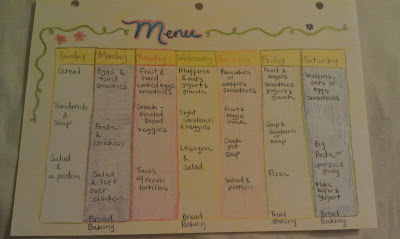 Menu
Sunday Monday Tuesday Wednesday Thursday Friday Saturday
Cereal
Sandwich
& Soup
Salad &
a protein
Eggs &
toast
smoothies
Pasta
&
chicken
Salad
& left
over
chicken
Bread
Baking
Fruit &
hard
boiled eggs
smoothies
Snack-
bread
veggies
Tacos
w/ fresh
tortillas
Muffins
& oats
yogurt &
granola
Light
Sandwich
& veggies
Lasagna
&
salad
Bread
Baking
Pancakes
or
waffles
smoothies
Fruit &
veggie
snack
Crock
pot
soup
Salad &
protein
Fruit &
bagels
smoothies
yogurt &
granola
Soup &
Sandwich
or
Pizza
Bread
Baking
Muffins,
oats or
eggs
smoothies
Big
Pasta or
&
gravy
Make
kefir &
yogurt
Bread
Baking